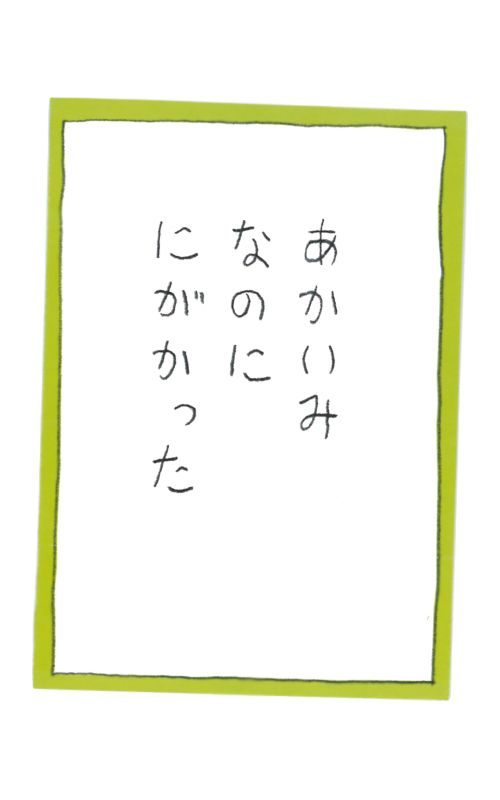 あかいみ
なのに
にがかった